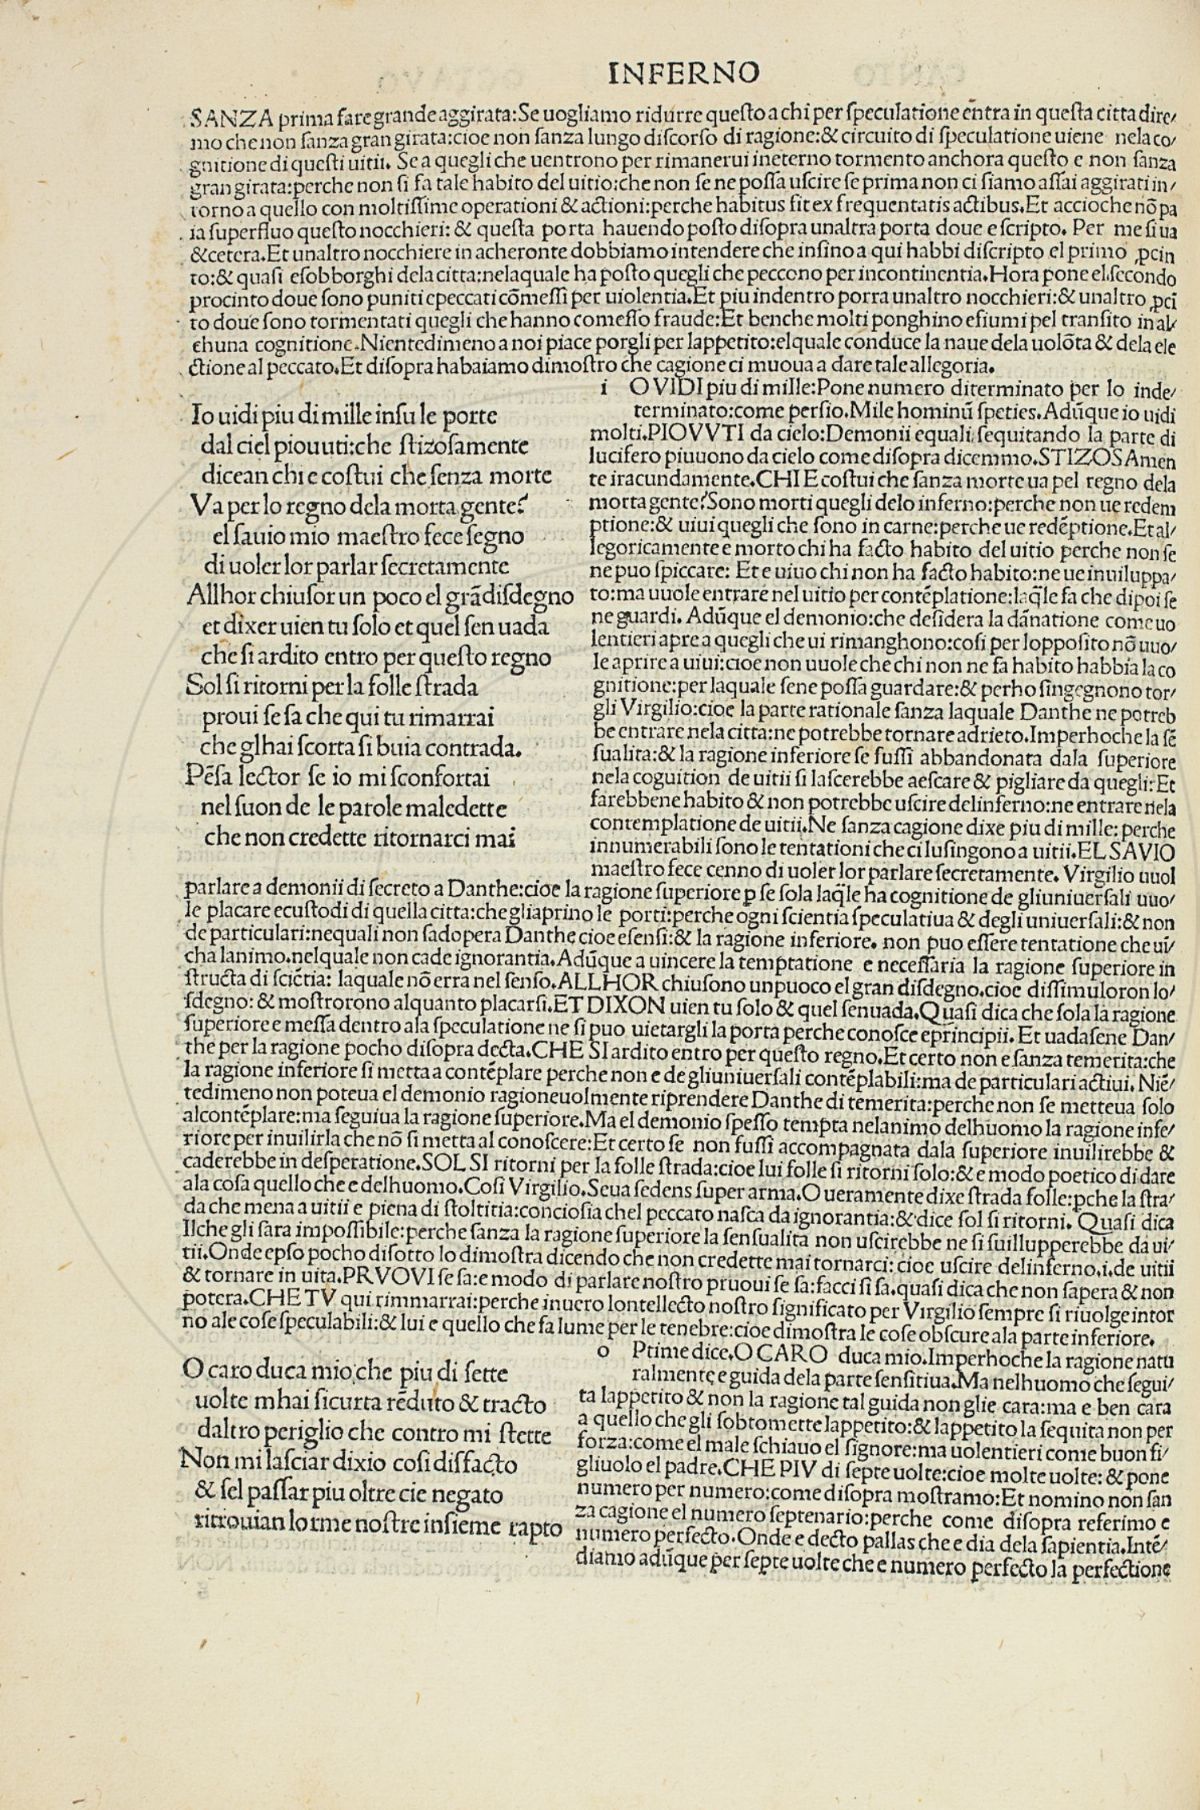 INFERNO
SANZA prima fare grande aggirata:Se uogliamo ridurre questo a chi per speculatione entra in questa citta dire/
mo che non sanza gran girata:cioe non sanza lungo discorso di ragione:& circuito di speculatione uiene nela co/
gnitione di questi uitii. Se a quegli che uentrono per rimanerui ineterno tormento anchora questo e non sanza
gran girata:perche non si fa tale habito del uitio:che non se ne possa uscire se prima non ci siamo assai aggirati in/
torno a quello con moltissime operationi & actioni:perche habitus fit ex frequentatis actibus.Et accioche nō pa
ia superfluo questo nocchieri: & questa porta hauendo posto disopra unaltra porta doue e scripto. Per me si ua
&cetera.Et unaltro nocchiere in acheronte dobbiamo intendere che insino a qui habbi discripto el primo ꝓcin
to:& quasi esobborghi dela citta:nelaquale ha posto quegli che peccono per incontinentia.Hora pone el secondo
procinto doue sono puniti epeccati cōmessi per uiolentia.Et piu indentro porra unaltro nocchieri:& unaltro ꝓci
to doue sono tormentati quegli che hanno comesso fraude:Et benche molti ponghino efiumi pel transito in al/
chuna cognitione.Nientedimeno a noi piace porgli per lappetito:elquale conduce la naue dela uolōta & dela ele
ctione al peccato.Et disopra habaiamo dimostro che cagione ci muoua a dare tale allegoria.
Io uidi piu di mille insu le porte
dal ciel piouuti:che stizosamente
dicean chi e costui che senza morte
Va per lo regno dela morta gente?
el sauio mio maestro fece segno
di uoler lor parlar secretamente
Allhor chiusor un poco el grādisdegno
et dixer uien tu solo et quel sen uada
che si ardito entro per questo regno
Sol si ritorni per la folle strada
proui se sa che qui tu rimarrai
che glhai scorta si buia contrada.
Pēsa lector se io mi sconfortai
nel suon de le parole maledette
che non credette ritornarci mai
i O VIDI piu di mille:Pone numero diterminato per lo inde/
terminato:come persio.Mile hominū speties.Adūque io uidi
molti.PIOVVTI da cielo:Demonii equali sequitando la parte di
lucifero piuuono da cielo come disopra dicemmo.STIZOSAmen
te iracundamente.CHI E costui che sanza morte ua pel regno dela
morta gente?Sono morti quegli delo inferno:perche non ue redem
ptione:& uiui quegli che sono in carne:perche ue redēptione.Et al/
legoricamente e morto chi ha facto habito del uitio perche non se
ne puo spiccare: Et e uiuo chi non ha facto habito:ne ue inuiluppa/
to:ma uuole entrare nel uitio per contēplatione:laq̄le fa che dipoi se
ne guardi. Adūque el demonio:che desidera la dānatione come uo
lentieri apre a quegli che ui rimanghono:cosi per lopposito nō uuo/
le aprire a uiui:cioe non uuole che chi non ne fa habito habbia la co
gnitione:per laquale sene possa guardare:& perho singegnono tor/
gli Virgilio:cioe la parte rationale sanza laquale Danthe ne potreb
be entrare nela citta:ne potrebbe tornare adrieto.Imperhoche la sē
sualita:& la ragione inferiore se fussi abbandonata dala superiore
nela coguition de uitii si lascerebbe aescare & pigliare da quegli:Et
farebbene habito & non potrebbe uscire delinferno:ne entrare nela
contemplatione de uitii.Ne sanza cagione dixe piu di mille: perche
innumerabili sono le tentationi che ci lusingono a uitii.EL SAVIO
maestro fece cenno di uoler lor parlare secretamente. Virgilio uuol
parlare a demonii di secreto a Danthe:cioe la ragione superiore ꝑ se sola laq̄le ha cognitione de gliuniuersali uuo/
le placare ecustodi di quella citta:che gliaprino le porti:perche ogni scientia speculatiua & degli uniuersali:& non
de particulari:nequali non sadopera Danthe cioe esensi:& la ragione inferiore. non puo essere tentatione che uī
cha lanimo.nelquale non cade ignorantia.Adūque a uincere la temptatione e necessaria la ragione superiore in
structa di sciētia: laquale nō erra nel senso.ALLHOR chiusono unpuoco el gran disdegno.cioe dissimuloron lo/
sdegno: & mostrorono alquanto placarsi.ET DIXON uien tu solo & quel senuada.Quasi dica che sola la ragione
superiore e messa dentro ala speculatione ne si puo uietargli la porta perche conosce eprincipii. Et uadasene Dan/
the per la ragione pocho disopra decta.CHE SI ardito entro per questo regno.Et certo non e sanza temerita:che
la ragione inferiore si metta a contēplare perche non e de gliuniuersali contēplabili:ma de particulari actiui. Niē/
tedimeno non poteua el demonio ragioneuolmente riprendere Danthe di temerita:perche non se metteua solo
alcontēplare:ma seguiua la ragione superiore.Ma el demonio spesso tempta nelanimo delhuomo la ragione infe/
riore per inuilirla che nō si metta al conoscere:Et certo se non fussi accompagnata dala superiore inuilirebbe &
caderebbe in desperatione.SOL SI ritorni per la folle strada:cioe lui folle si ritorni solo:& e modo poetico di dare
ala cosa quello che e delhuomo.Cosi Virgilio.Seua sedens super arma.O ueramente dixe strada folle:pche la stra/
da che mena a uitii e piena di stoltitia:conciosia chel peccato nasca da ignorantia:& dice sol si ritorni. Quasi dica
Ilche gli sara impossibile:perche sanza la ragione superiore la sensualita non uscirebbe ne si suillupperebbe da ui/
tii.Onde epso pocho disotto lo dimostra dicendo che non credette mai tornarci: cioe uscire delinferno.i.de uitii
& tornare in uita.PRVOVI se sa:e modo di parlare nostro pruoui se sa:facci si sa.quasi dica che non sapera & non
potera.CHE TV qui rimmarrai:perche inuero lontellecto nostro significato per Virgilio sempre si riuolge intor
no ale cose speculabili:& lui e quello che fa lume per le tenebre:cioe dimostra le cose obscure ala parte inferiore.
O caro duca mio che piu di sette
uolte mhai sicurta rēduto & tracto
daltro periglio che contro mi stette
Non mi lasciar dixio cosi disfacto
& sel passar piu oltre cie negato
ritrouian lorme nostre insieme rapto
o Ptime dice.O CARO duca mio.Imperhoche la ragione natu
ralmente e guida dela parte sensitiua.Ma nelhuomo che segui/
ta lappetito & non la ragione tal guida non glie cara:ma e ben cara
a quello che gli sobtomette lappetito:& lappetito la sequita non per
forza:come el male schiauo el signore:ma uolentieri come buon fi/
gliuolo el padre.CHE PIV di septe uolte:cioe molte uolte: & pone
numero per numero:come disopra mostramo:Et nomino non san
za cagione el numero septenario:perche come disopra referimo e
numero perfecto.Onde e decto pallas che e dia dela sapientia.Intē/
diamo adūque per septe uolte che e numero perfecto la perfectione